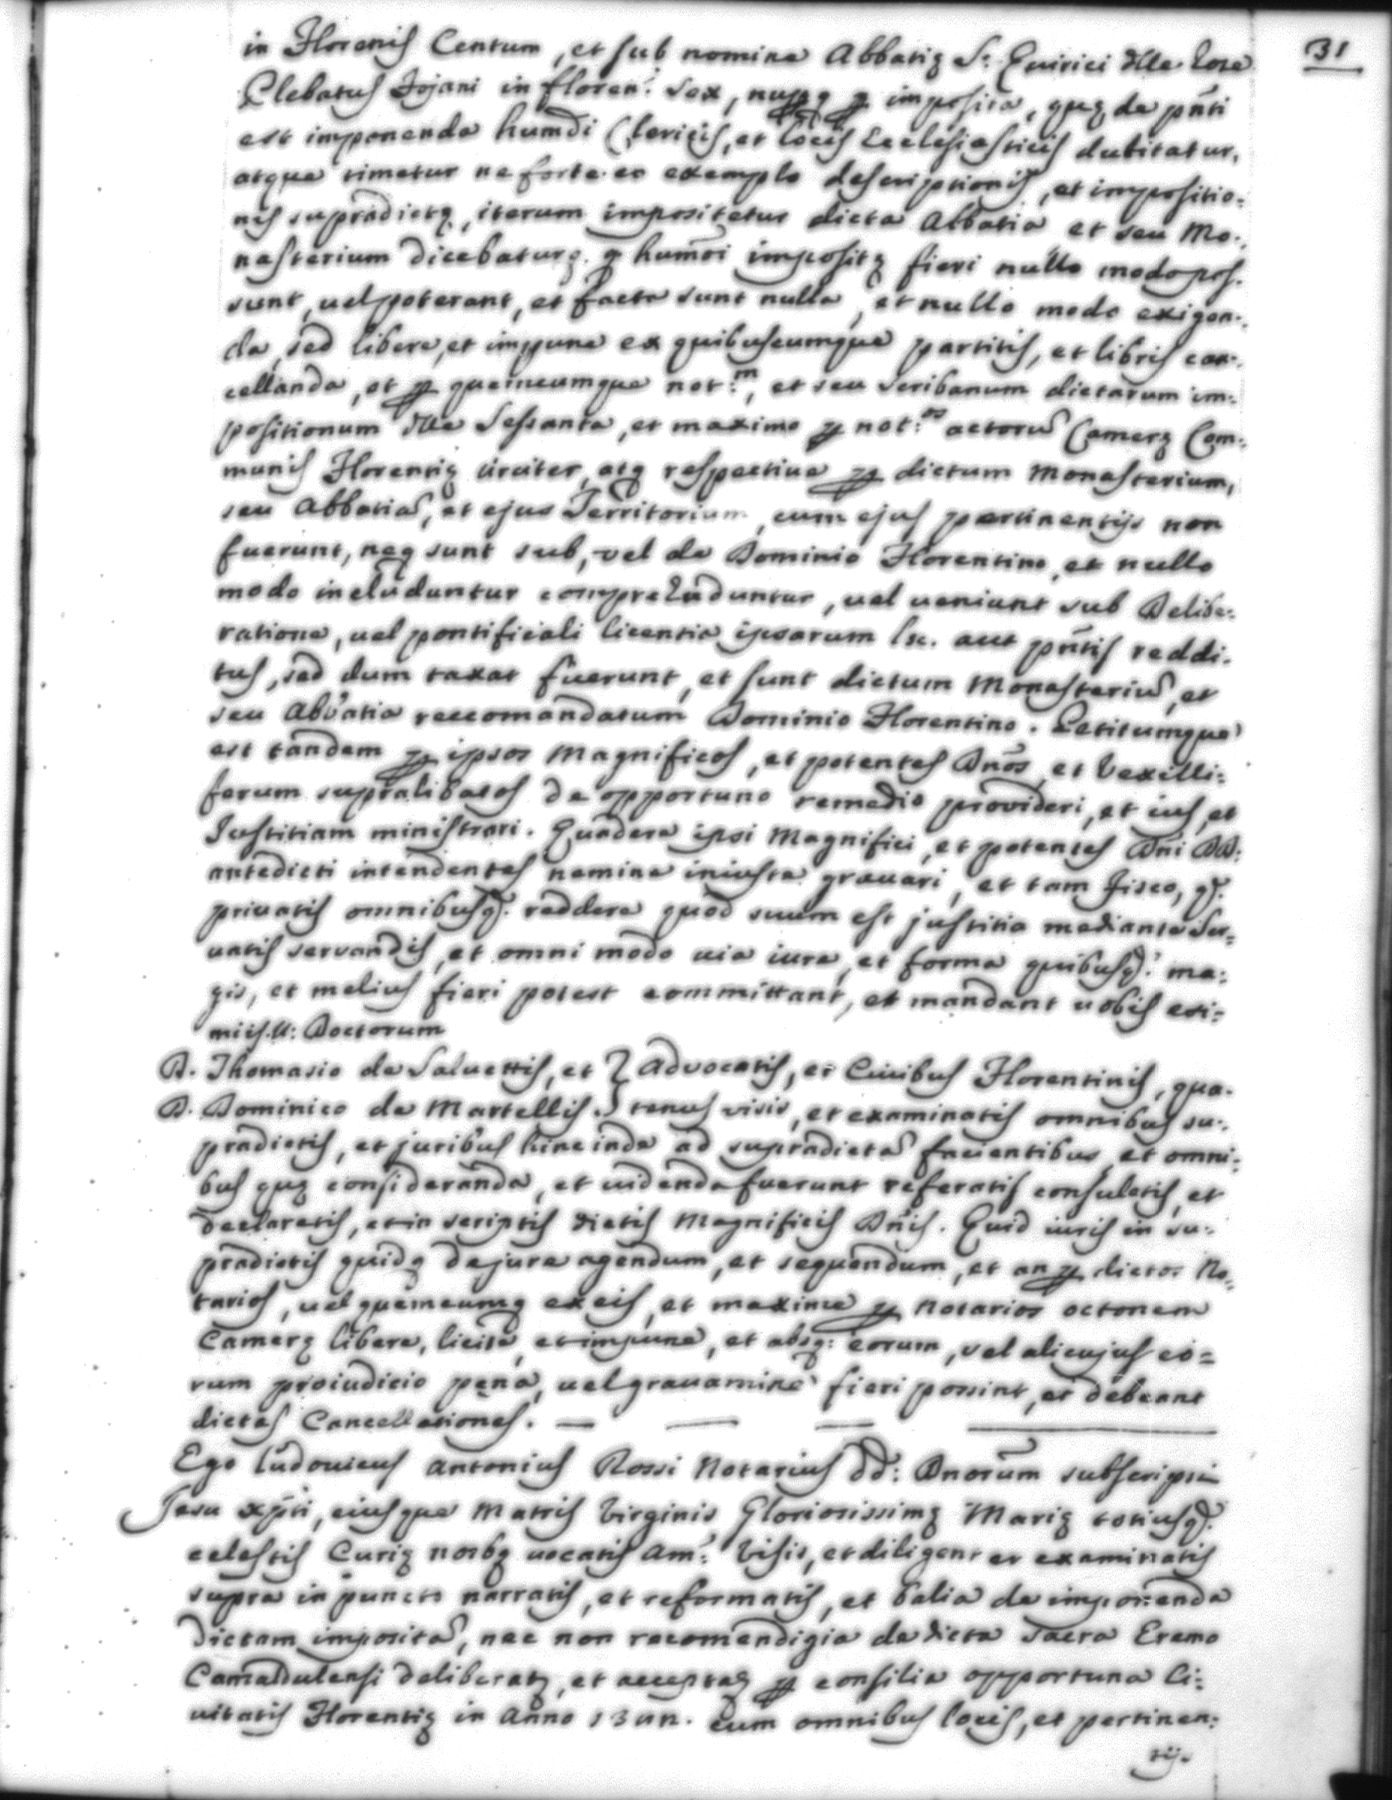 31
in Florenis Centum, et sub nomine Abbatię S: Quirici dlle Rose
Plebatus Jojani in floren: Sex, nuꝑq ꝑ imposita, quę de pñti
est imponenda humdi Clericis, et locis Ecclesiasticis dubitatur,
atque timetur ne forte eo exemplo descriptionis, et impositio:
nis supradictę, iterum impositetur dicta Abbatia et seu Mo:
nasterium dicebaturq. q humoi impositę fieri nullo modo pos:
sunt, uel poterant, et facta sunt nulla, et nullo modo exigen:
da, sed libere, et impune ex quibuscumque partitis, et libris can:
cellanda, et ꝑ quemcumque not:m, et seu scribanum dictarum im:
positionum dlle Sessanta, et maxime ꝑ not:os actorũ Camerę Com:
munis Florentię uirciter, atq respective ꝑ dictum Monasterium,
seu Abbatiã, et ejus Territorium, cum ejus pertinentijs non
fuerunt, neq sunt sub, vel de Dominio Florentino, et nullo
modo includuntur comprehenduntur, uel ueniunt sub Delibe:
ratione, uel pontificiali licentia ipsarum &c. aut pñtis reddi:
tus, sed dum taxat fuerunt, et sunt dictum Monasteriũ, et
seu Abbatia reccomandatum Dominio Florentino. Petitumque
est tandem ꝑ ipsos Magnificos, et potentes Dnos, et Vexilli:
ferum supralibatos de opportuno remedio provideri, et ius, et
Justitiam ministrari. Quadere ipsi Magnifici, et potentes Dni DD:
antedicti intendentes nemine iniuste grauari, et tam fisco, q:
priuatis omnibusq: reddere quod suum est justitia mediante Ser:
uatis servandis, et omni modo uia iure, et forma quibusq: ma:
gis, et melius fieri potest committant, et mandant uobis exi:
miis U: Doctorum
D. Thomasio de Saluettis, et } Advocatis, et Ciuibus Florentinis, qua:
D. Dominico de Martellis. } tenus visis, et examinatis omnibus su:
pradictis, et juribus hinc inde ad supradictã facientibus, et omni:
bus quę consideranda, et uidenda fuerunt referatis consuletis, et
declaretis, et in scriptis dictis Magnificis Dñis. Quid iuris in su:
pradictis quidq de jure agendum, et sequendum, et an ꝑ dictos No:
tarios, uel quemcumq ex eis, et maxime ꝑ Notarios octonem
Camerę libere, licite, et impune, et absq: eorum, vel alicujus eo=
rum proiudicio pena, uel grauamine fieri possint, et debeant
dictas Cancellationes.
Ego Ludouicus Antonius Rossi Notarius dd: Dnorum subscripsi
Jesu xpti, eiusque Matris Virginis Gloriosissimę Marię totiusq:
celestis Curię noibq uocatis Am: Visis, et diligenter examinatis
supra in puncto narratis, et reformatis, et balia de imponenda
dictam impositã, nec non recomendigia de dicta Sacra Eremo
Camaldulensi deliberatę, et acceptaę ꝑ consilia opportuna Ci:
uitatis Florentię in Anno 13
cum omnibus locis, et pertinen:
tijs